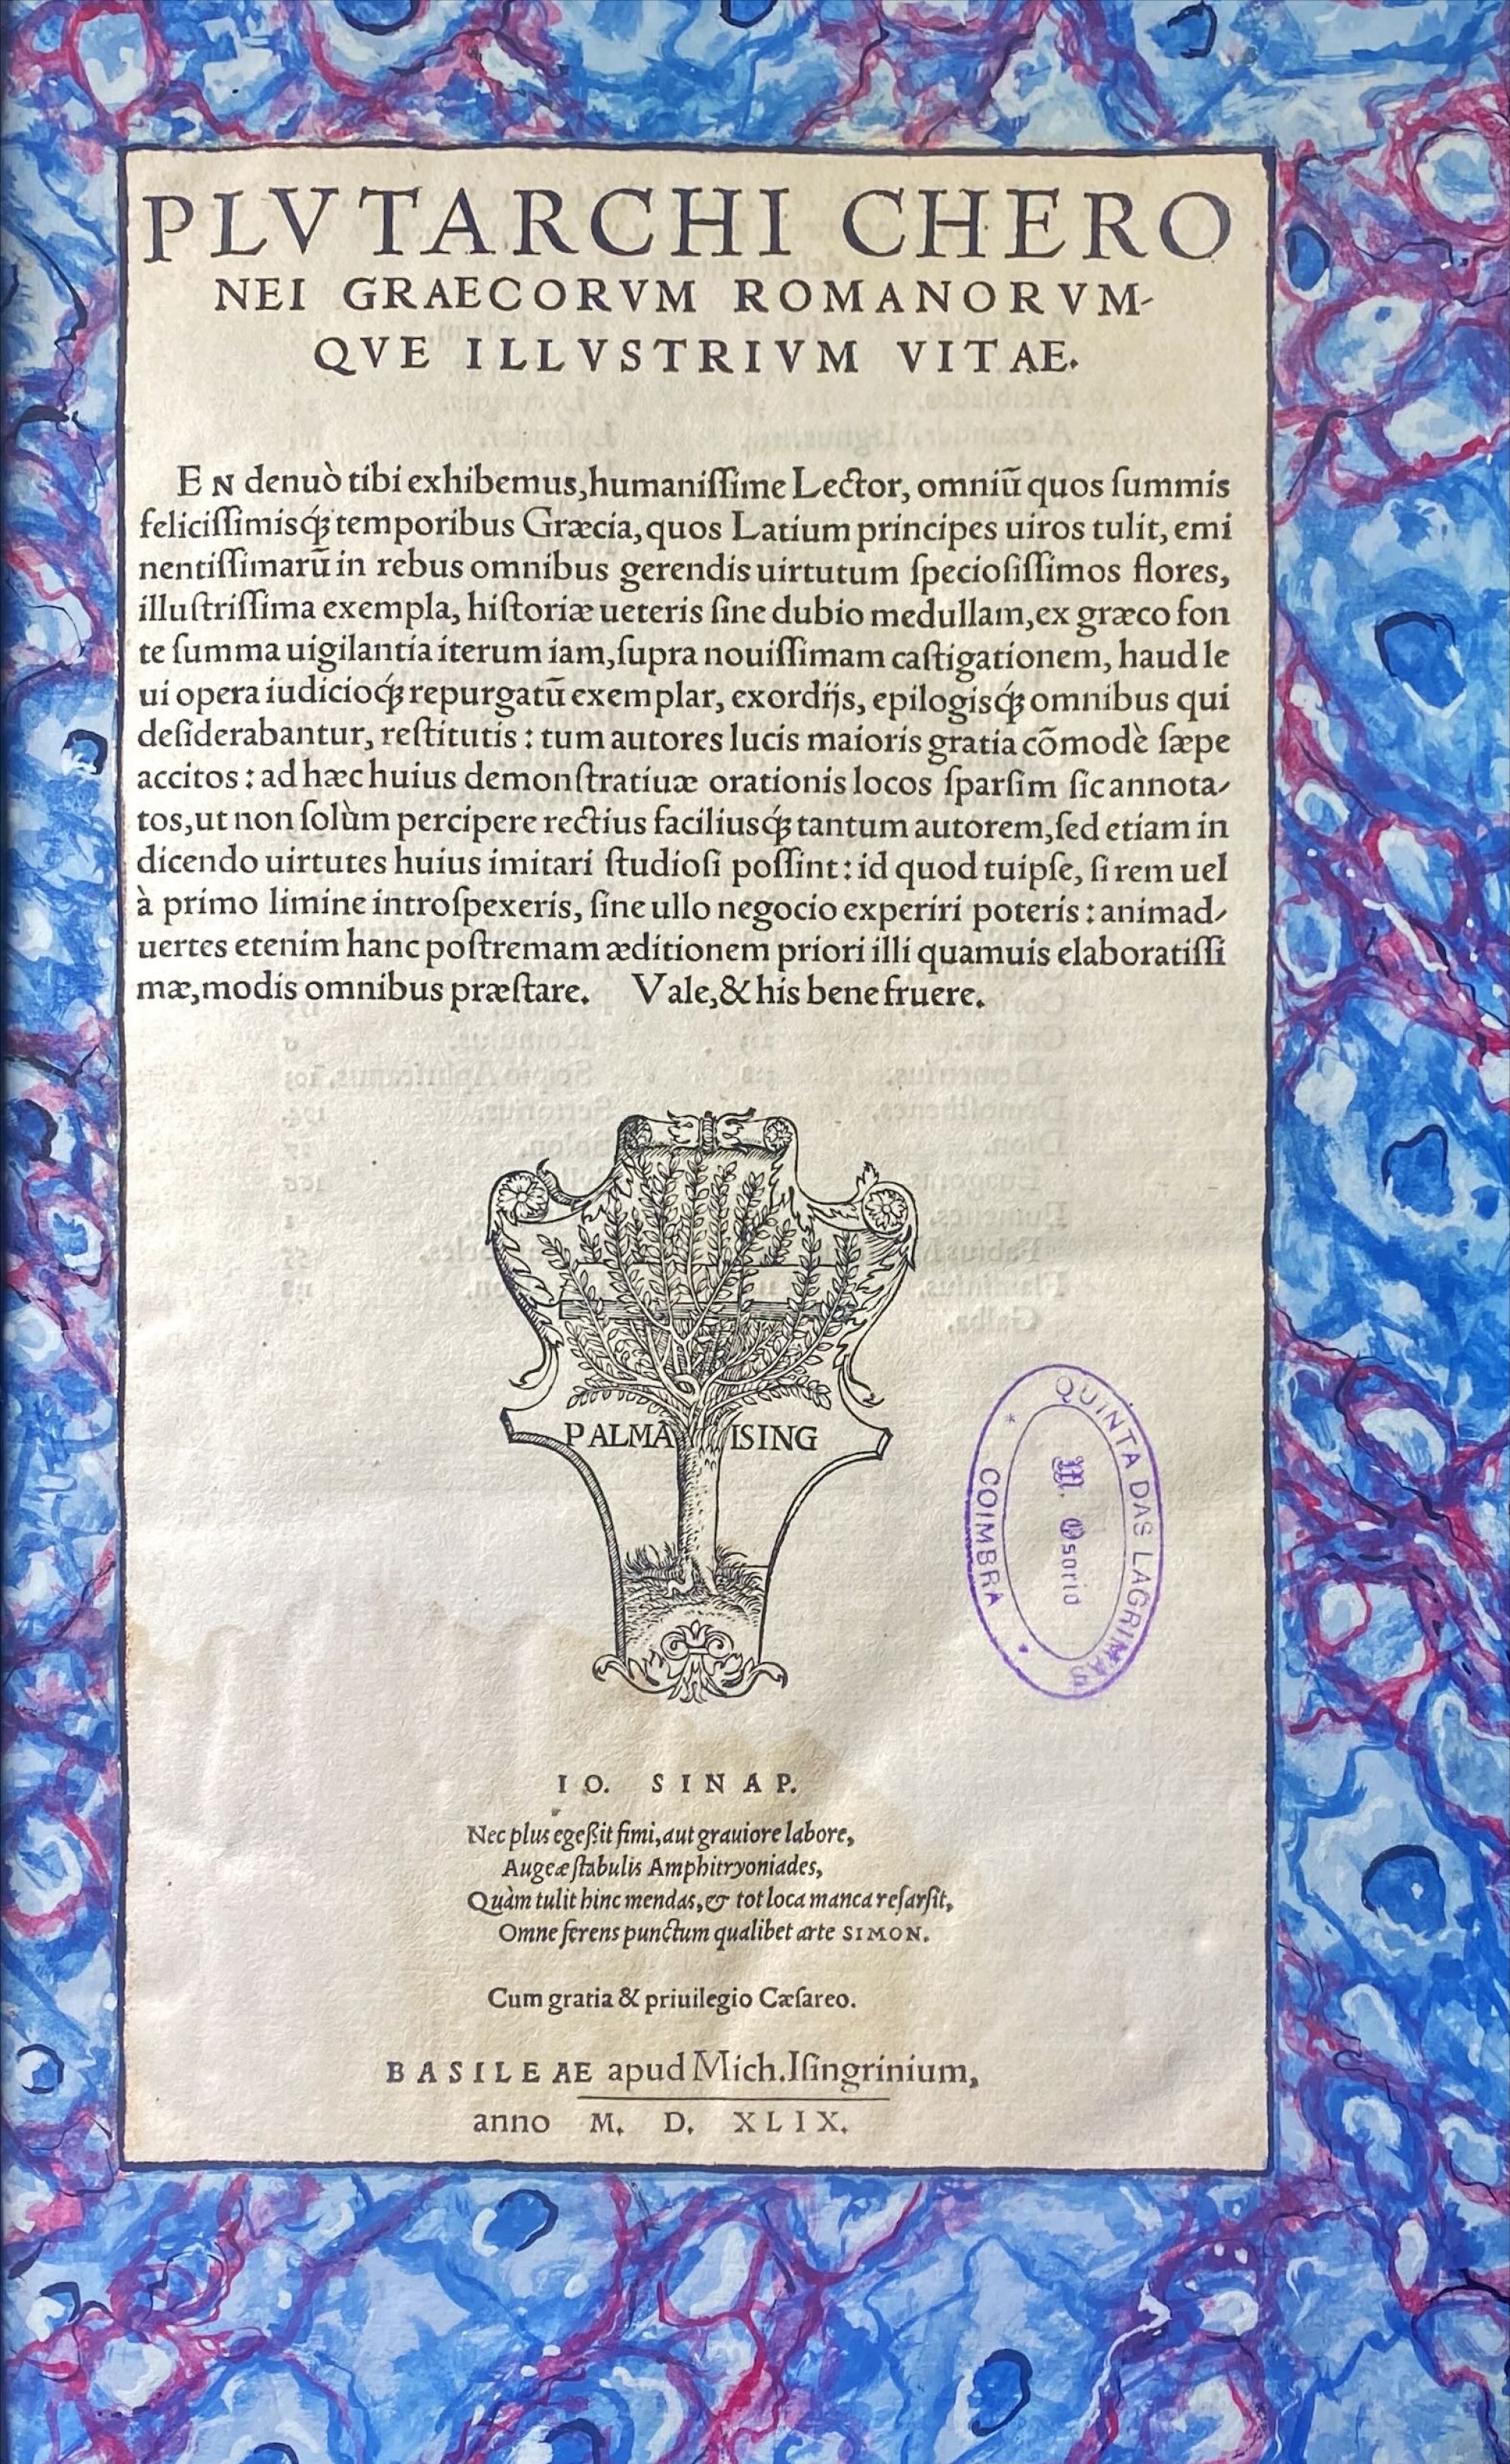 PLVTARCHI CHERO
NEI GRAECORVM ROMANORVM-
QVE ILLVSTRIVM VITAE.
EN denuò tibi exhibemus, humaniſſime Lector, omniū quos ſummis
feliciſſimisq́; temporibus Græcia, quos Latium principes uiros tulit, emi
nentiſſimarū in rebus omnibus gerendis uirtutum ſpecioſiſſimos flores,
illuſtriſſima exempla, hiſtoriæ ueteris ſine dubio medullam, ex græco fon
te ſumma uigilantia iterum iam, ſupra nouiſſimam caſtigationem, haud le
ui opera iudicioq́; repurgatū exemplar, exordijs, epilogisq́; omnibus qui
deſiderabantur, reſtitutis: tum autores lucis maioris gratia cōmodè ſæpe
accitos: ad hæc huius demonſtratiuæ orationis locos ſparſim ſic annota-
tos, ut non ſolùm percipere rectius faciliusq́; tantum autorem, ſed etiam in
dicendo uirtutes huius imitari ſtudioſi poſſint: id quod tuipſe, ſi rem uel
à primo limine introſpexeris, ſine ullo negocio experiri poteris: animad-
uertes etenim hanc poſtremam æditionem priori illi quamuis elaboratiſſi
mæ, modis omnibus præſtare. Vale, & his bene fruere.
PALMA ISING
QUINTA DAS LAGRIMAS
M. Osorio
COIMBRA
IO. SINAP.
Nec plus egeßit fimi, aut grauiore labore,
Augeæ ſtabulis Amphitryoniades,
Quàm tulit hinc mendas, & tot loca manca reſarſit,
Omne ferens punctum qualibet arte SIMON.
Cum gratia & priuilegio Cæſareo.
BASILEAE apud Mich. Iſingrinium,
anno M. D. XLIX.